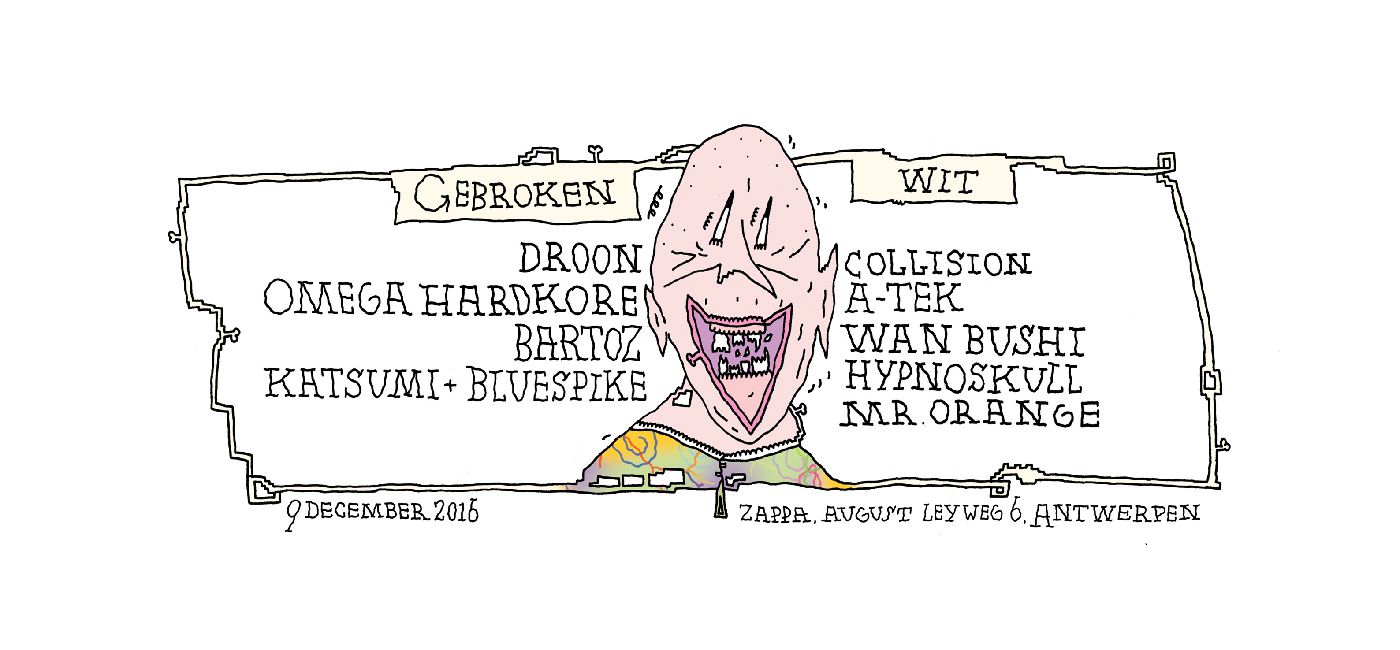 GEBROKEN WIT
DROON
OMEGA HARDKORE
BARTOZ
KATSUMI + BLUESPIKE
COLLISION
A-TEK
WAN BUSHI
HYPNOSKULL
MR. ORANGE
9 DECEMBER 2016
ZAPPA, AUGUST LEYWEG 6, ANTWERPEN